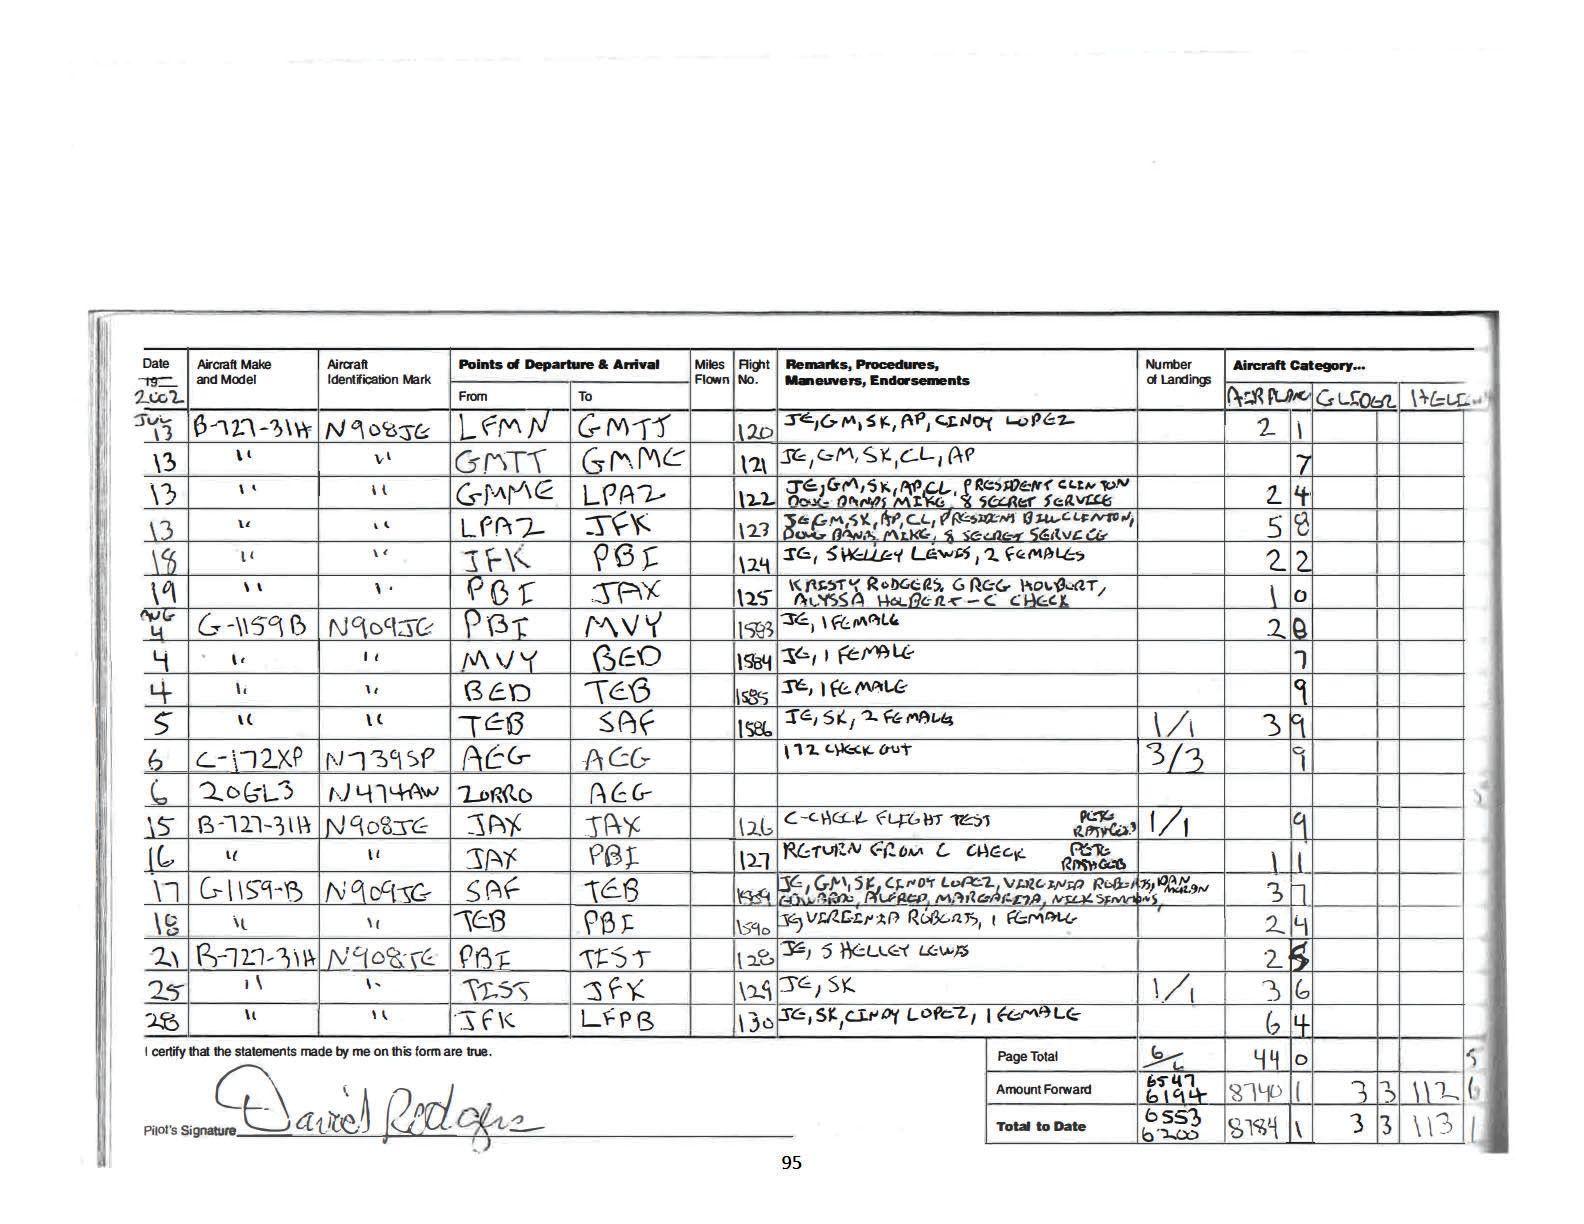 Date Aircraft Make Aircraft Points of Departure & Arrival Miles Flight Remarks, Procedures, Number Aircraft Category...
19 and Model Identification Mark Flown No. Maneuvers, Endorsements of Landings
2002 From To AIRPLANE GLIDER
JUL
13 B-727-31H N908JE LFMN GMTT 120 JE, GM, SK, AP, CINDY LOPEZ 2 1
13 " " GMTT GMME 121 JE, GM, SK, CL, AP 7
13 " " GMME LPAZ 122 JE, GM, SK, AP, CL, PRESIDENT CLINTON 2 4
DOUG BANDS MIKE, 8 SECRET SERVICE
13 " " LPAZ JFK 123 JE, GM, SK, AP, CL, PRESIDENT BILL CLINTON, 5 8
DOUG BANDS, MIKE, 8 SECRET SERVICE
18 " " JFK PBI 124 JE, SHELLEY LEWIS, 2 FEMALES 2 2
19 " " PBI JAX 125 KRISTY RODGERS, GREG HOLBERT, 1 0
ALYSSA HOLBERT - C CHECK
AUG
4 G-1159B N909JE PBI MVY 1583 JE, 1 FEMALE 2 8
4 " " MVY BED 1584 JE, 1 FEMALE 7
4 " " BED TEB 1585 JE, 1 FEMALE 9
5 " " TEB SAF 1586 JE, SK, 2 FEMALES 1/1 3 9
6 C-172XP N739SP AEG AEG 172 CHECK OUT 3/3 9
6 206L3 N474AW ZORRO AEG
15 B-727-31H N908JE JAX JAX 126 C-CHECK FLIGHT TEST PETE 1/1 9
16 " " JAX PBI 127 RETURN FROM C CHECK PETE 1 1
17 G1159-B N909JE SAF TEB 1589 JE, GM, SK, CINDY LOPEZ, VIRGINIA ROBERTS, 3 7
ALFRED, MARGARITA, NICK SIMMONS,
18 " " TEB PBI 1590 JE, VIRGINIA ROBERTS, 1 FEMALE 2 4
21 B-727-31H N908JE PBI TIST 128 JE, SHELLEY LEWIS 2 5
25 " " TIST JFK 129 JE, SK 1/1 3 6
28 " " JFK LFPB 130 JE, SK, CINDY LOPEZ, 1 FEMALE 6 4
I certify that the statements made by me on this form are true. Page Total 6/6 44 0 5
Amount Forward 6547 8740 1 3 3 112 6
6194
Pilot's Signature David Rodgers Total to Date 6553 8784 1 3 3 113 1
6200
95